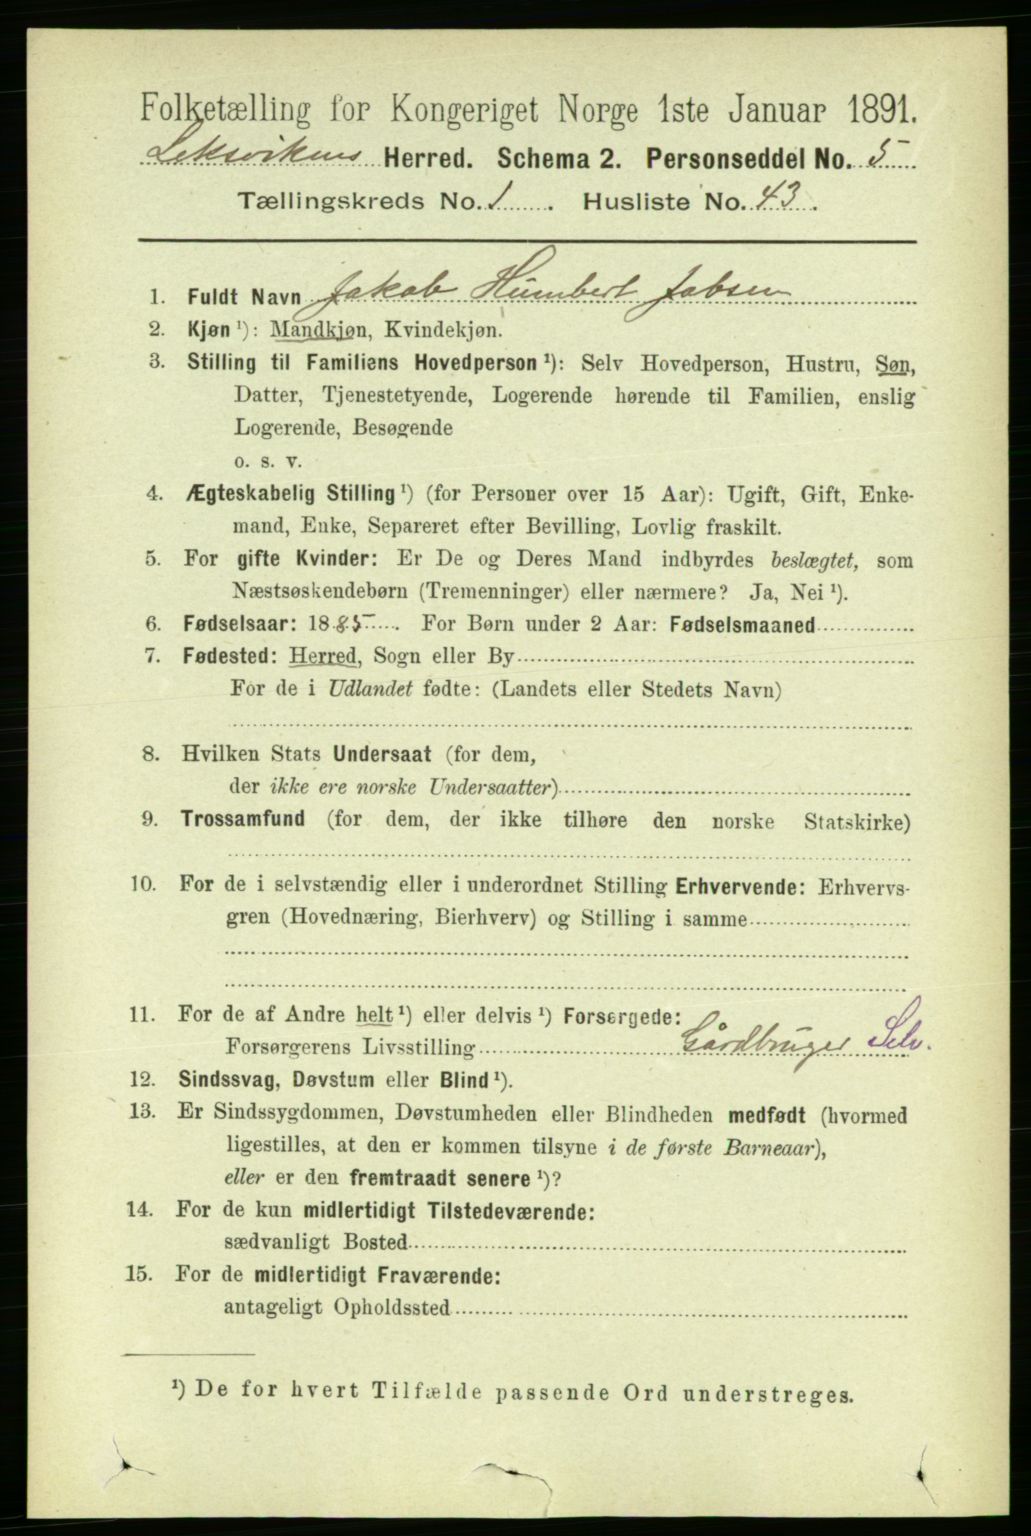 Folketælling for Kongeriget Norge 1ste Januar 1891.
Leksvikens Herred. Schema 2. Personseddel No. 5
Tællingskreds No. 1. Husliste No. 43.
1. Fuldt Navn Jakob Humbert Jobsen
2. Kjøn ¹): Mandkjøn, Kvindekjøn.
3. Stilling til Familiens Hovedperson ¹): Selv Hovedperson, Hustru, Søn,
Datter, Tjenestetyende, Logerende hørende til Familien, enslig
Logerende, Besøgende
o. s. v.
4. Ægteskabelig Stilling ¹) (for Personer over 15 Aar): Ugift, Gift, Enke-
mand, Enke, Separeret efter Bevilling, Lovlig fraskilt.
5. For gifte Kvinder: Er De og Deres Mand indbyrdes beslægtet, som
Næstsøskendebørn (Tremenninger) eller nærmere? Ja, Nei ¹).
6. Fødselsaar: 1885. For Børn under 2 Aar: Fødselsmaaned
7. Fødested: Herred, Sogn eller By
For de i Udlandet fødte: (Landets eller Stedets Navn)
8. Hvilken Stats Undersaat (for dem,
der ikke ere norske Undersaatter)
9. Trossamfund (for dem, der ikke tilhøre den norske Statskirke)
10. For de i selvstændig eller i underordnet Stilling Erhvervende: Erhvervs-
gren (Hovednæring, Bierhverv) og Stilling i samme
11. For de af Andre helt ¹) eller delvis ¹) Forsørgede:
Forsørgerens Livsstilling Gårdbruger Selv.
12. Sindssvag, Døvstum eller Blind ¹).
13. Er Sindssygdommen, Døvstumheden eller Blindheden medfødt (hvormed
ligestilles, at den er kommen tilsyne i de første Barneaar),
eller er den fremtraadt senere ¹)?
14. For de kun midlertidigt Tilstedeværende:
sædvanligt Bosted
15. For de midlertidigt Fraværende:
antageligt Opholdssted
¹) De for hvert Tilfælde passende Ord understreges.